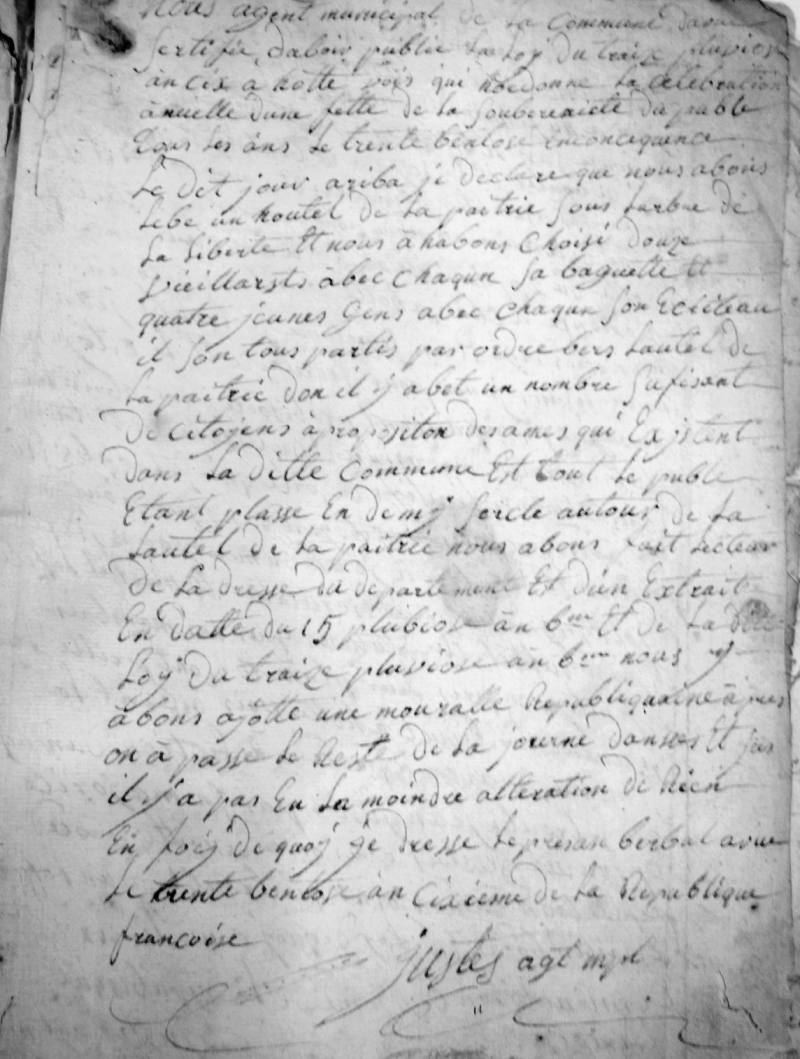 Nous agent municipal de la Commune davie
Sertifie daboir publie la loy du traize pluviose
àn cix a hotte vois qui nbedonne la celebration
ànuelle dune fette de la souberenicte du puble
tous les àns le trente bentose enconcequence
Le dit jour ariba je declare que nous abons
lebe un houtel de la paitrie sous larbre de
la liberte Et nous à habons Choisi douze
vieillarsts àbec Chaqun sa baguette Et
quatre jeunes Gens abec Chaqun son Ecribeau
il son tous partis par ordre bers lautel de
la paitrie don il y abet un nombre sufisent
De citoyens à propositon desames qui Existent
dans la ditte Commune Est tout le puble
Etant plasse En demy sercle autour de la
lautel de la paitrie nous abons fait lecteur
de la dresse du departement Et dun Extrait
En datte du 15 plubiose àn 6me Et de la ditte
Loy du traize pluviose àn 6me nous y
àbons ajotte une mouralle Republiquaine à pres
on à passe le Reste de la journe danses Et jus
il y a pas Eu la moindre alteration de Rien
En foiy de quoy je dresse le presan berbal avie
le trente bentose àn Cixieme de la Republique
francoise
justes agt mpl